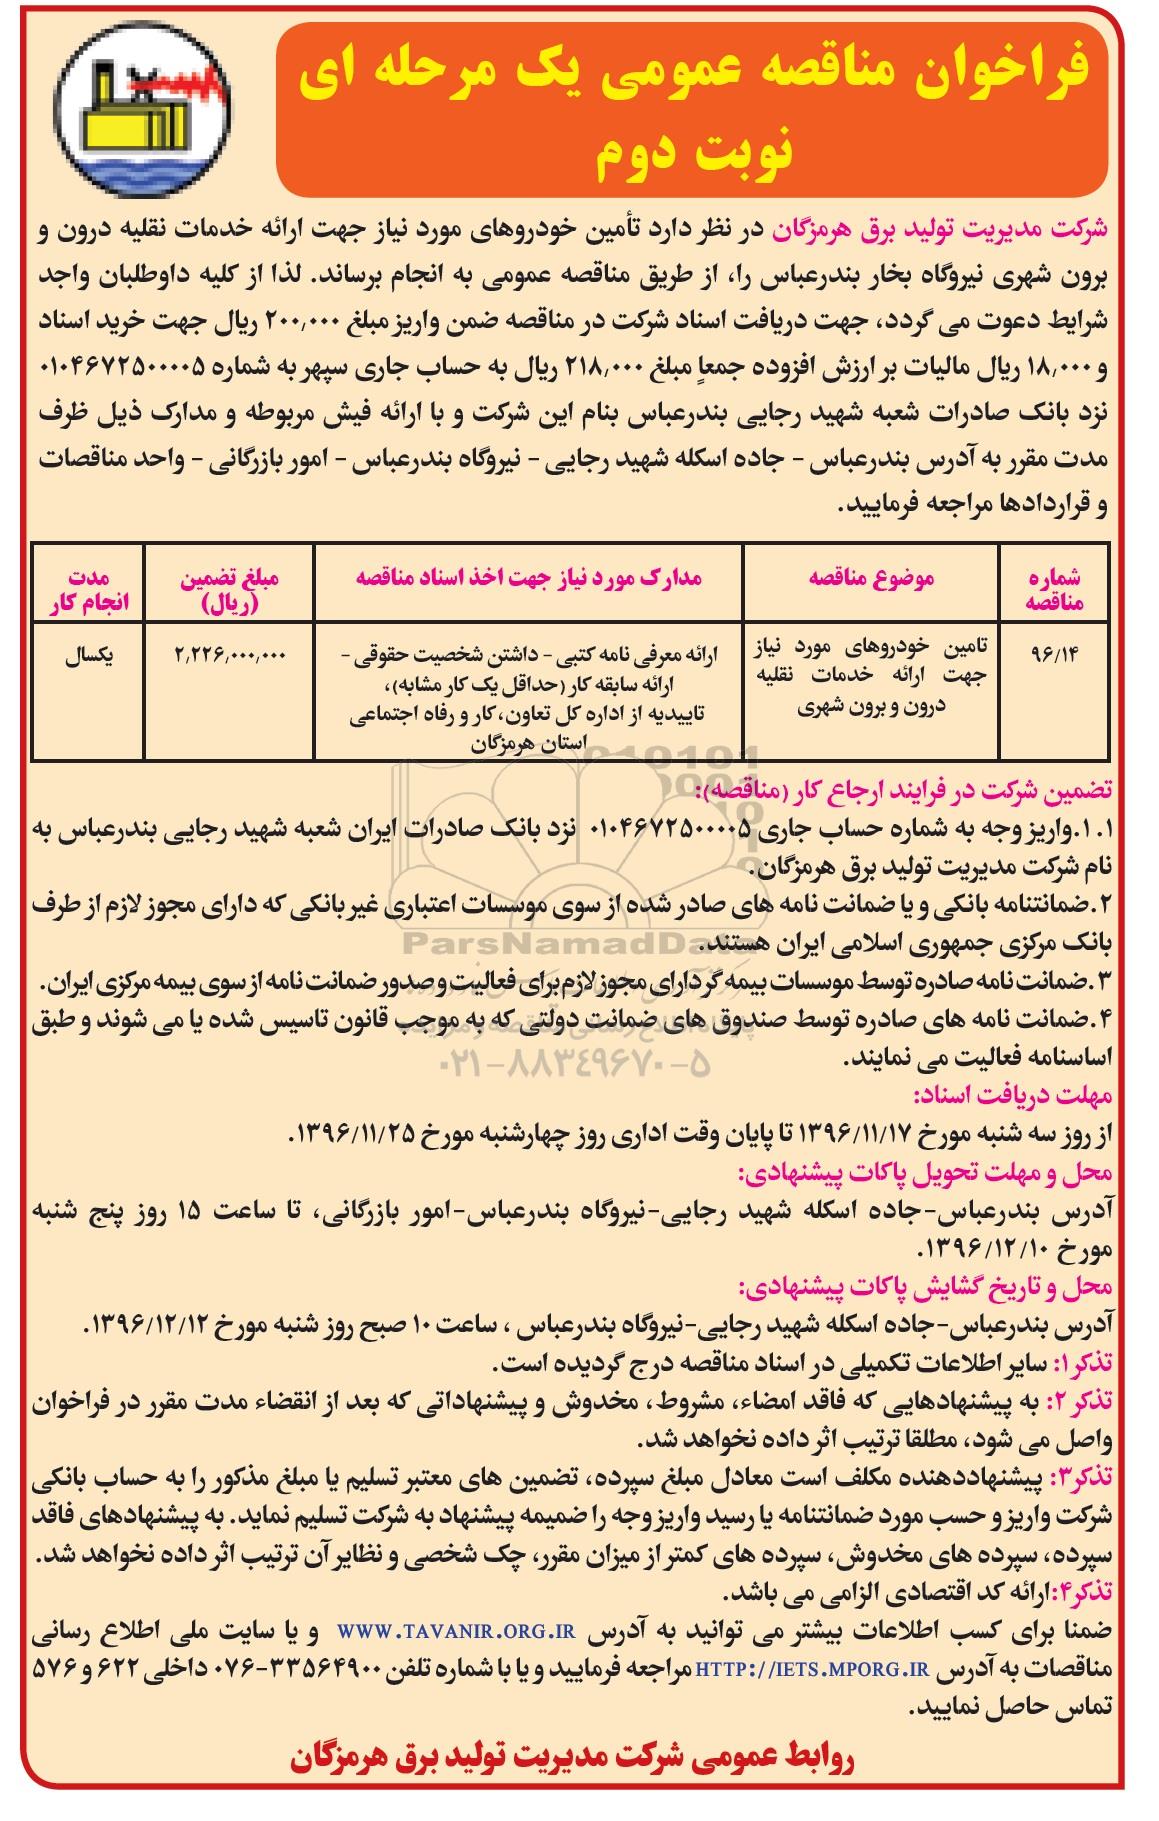 فراخوان مناقصه عمومی یک مرحله ای
نوبت دوم
شرکت مدیریت تولید برق هرمزگان در نظر دارد تأمین خودروهای مورد نیاز جهت ارائه خدمات نقلیه درون و
برون شهری نیروگاه بخار بندرعباس را، از طریق مناقصه عمومی به انجام برساند. لذا از کلیه داوطلبان واجد
شرایط دعوت می گردد، جهت دریافت اسناد شرکت در مناقصه ضمن واریز مبلغ ۲۰۰٫۰۰۰ ریال جهت خرید اسناد
و ۱۸٫۰۰۰ ریال مالیات بر ارزش افزوده جمعاٍ مبلغ ۲۱۸٫۰۰۰ ریال به حساب جاری سپهر به شماره ۰۱۰۴۶۷۲۵۰۰۰۰۵
نزد بانک صادرات شعبه شهید رجایی بندرعباس بنام این شرکت و با ارائه فیش مربوطه و مدارک ذیل ظرف
مدت مقرر به آدرس بندرعباس - جاده اسکله شهید رجایی - نیروگاه بندرعباس - امور بازرگانی - واحد مناقصات
و قراردادها مراجعه فرمایید.
شماره مناقصه
موضوع مناقصه
مدارک مورد نیاز جهت اخذ اسناد مناقصه
مبلغ تضمین (ریال)
مدت انجام کار
۹۶/۱۴
تامین خودروهای مورد نیاز
جهت ارائه خدمات نقلیه
درون و برون شهری
ارائه معرفی نامه کتبی - داشتن شخصیت حقوقی -
ارائه سابقه کار (حداقل یک کار مشابه)،
تاییدیه از اداره کل تعاون، کار و رفاه اجتماعی
استان هرمزگان
۲٫۲۲۶٫۰۰۰٫۰۰۰
یکسال
تضمین شرکت در فرایند ارجاع کار (مناقصه):
۱.۱.واریز وجه به شماره حساب جاری ۰۱۰۴۶۷۲۵۰۰۰۰۵ نزد بانک صادرات ایران شعبه شهید رجایی بندرعباس به
نام شرکت مدیریت تولید برق هرمزگان.
۲.ضمانتنامه بانکی و یا ضمانت نامه های صادر شده از سوی موسسات اعتباری غیر بانکی که دارای مجوز لازم از طرف
بانک مرکزی جمهوری اسلامی ایران هستند.
۳.ضمانت نامه صادره توسط موسسات بیمه گر دارای مجوز لازم برای فعالیت و صدور ضمانت نامه از سوی بیمه مرکزی ایران.
۴.ضمانت نامه های صادره توسط صندوق های ضمانت دولتی که به موجب قانون تاسیس شده یا می شوند و طبق
اساسنامه فعالیت می نمایند.
مهلت دریافت اسناد:
از روز سه شنبه مورخ ۱۳۹۶/۱۱/۱۷ تا پایان وقت اداری روز چهارشنبه مورخ ۱۳۹۶/۱۱/۲۵.
محل و مهلت تحویل پاکات پیشنهادی:
آدرس بندرعباس-جاده اسکله شهید رجایی-نیروگاه بندرعباس-امور بازرگانی، تا ساعت ۱۵ روز پنج شنبه
مورخ ۱۳۹۶/۱۲/۱۰.
محل و تاریخ گشایش پاکات پیشنهادی:
آدرس بندرعباس-جاده اسکله شهید رجایی-نیروگاه بندرعباس ، ساعت ۱۰ صبح روز شنبه مورخ ۱۳۹۶/۱۲/۱۲.
تذکر۱: سایر اطلاعات تکمیلی در اسناد مناقصه درج گردیده است.
تذکر ۲: به پیشنهادهایی که فاقد امضاء، مشروط، مخدوش و پیشنهاداتی که بعد از انقضاء مدت مقرر در فراخوان
واصل می شود، مطلقا ترتیب اثر داده نخواهد شد.
تذکر۳: پیشنهاددهنده مکلف است معادل مبلغ سپرده، تضمین های معتبر تسلیم یا مبلغ مذکور را به حساب بانکی
شرکت واریز و حسب مورد ضمانتنامه یا رسید واریز وجه را ضمیمه پیشنهاد به شرکت تسلیم نماید. به پیشنهادهای فاقد
سپرده، سپرده های مخدوش، سپرده های کمتر از میزان مقرر، چک شخصی و نظایر آن ترتیب اثر داده نخواهد شد.
تذکر۴:ارائه کد اقتصادی الزامی می باشد.
ضمنا برای کسب اطلاعات بیشتر می توانید به آدرس WWW.TAVANIR.ORG.IR و یا سایت ملی اطلاع رسانی
مناقصات به آدرس HTTP://IETS.MPORG.IR مراجعه فرمایید و یا با شماره تلفن ۳۳۵۶۴۹۰۰-۰۷۶ داخلی ۶۲۲ و ۵۷۶
تماس حاصل نمایید.
روابط عمومی شرکت مدیریت تولید برق هرمزگان
ParsNamadData
پایگاه اطلاع رسانی مناقصه و مزایده
۰۲۱-۸۸۳۴۹۶۷۰-۵